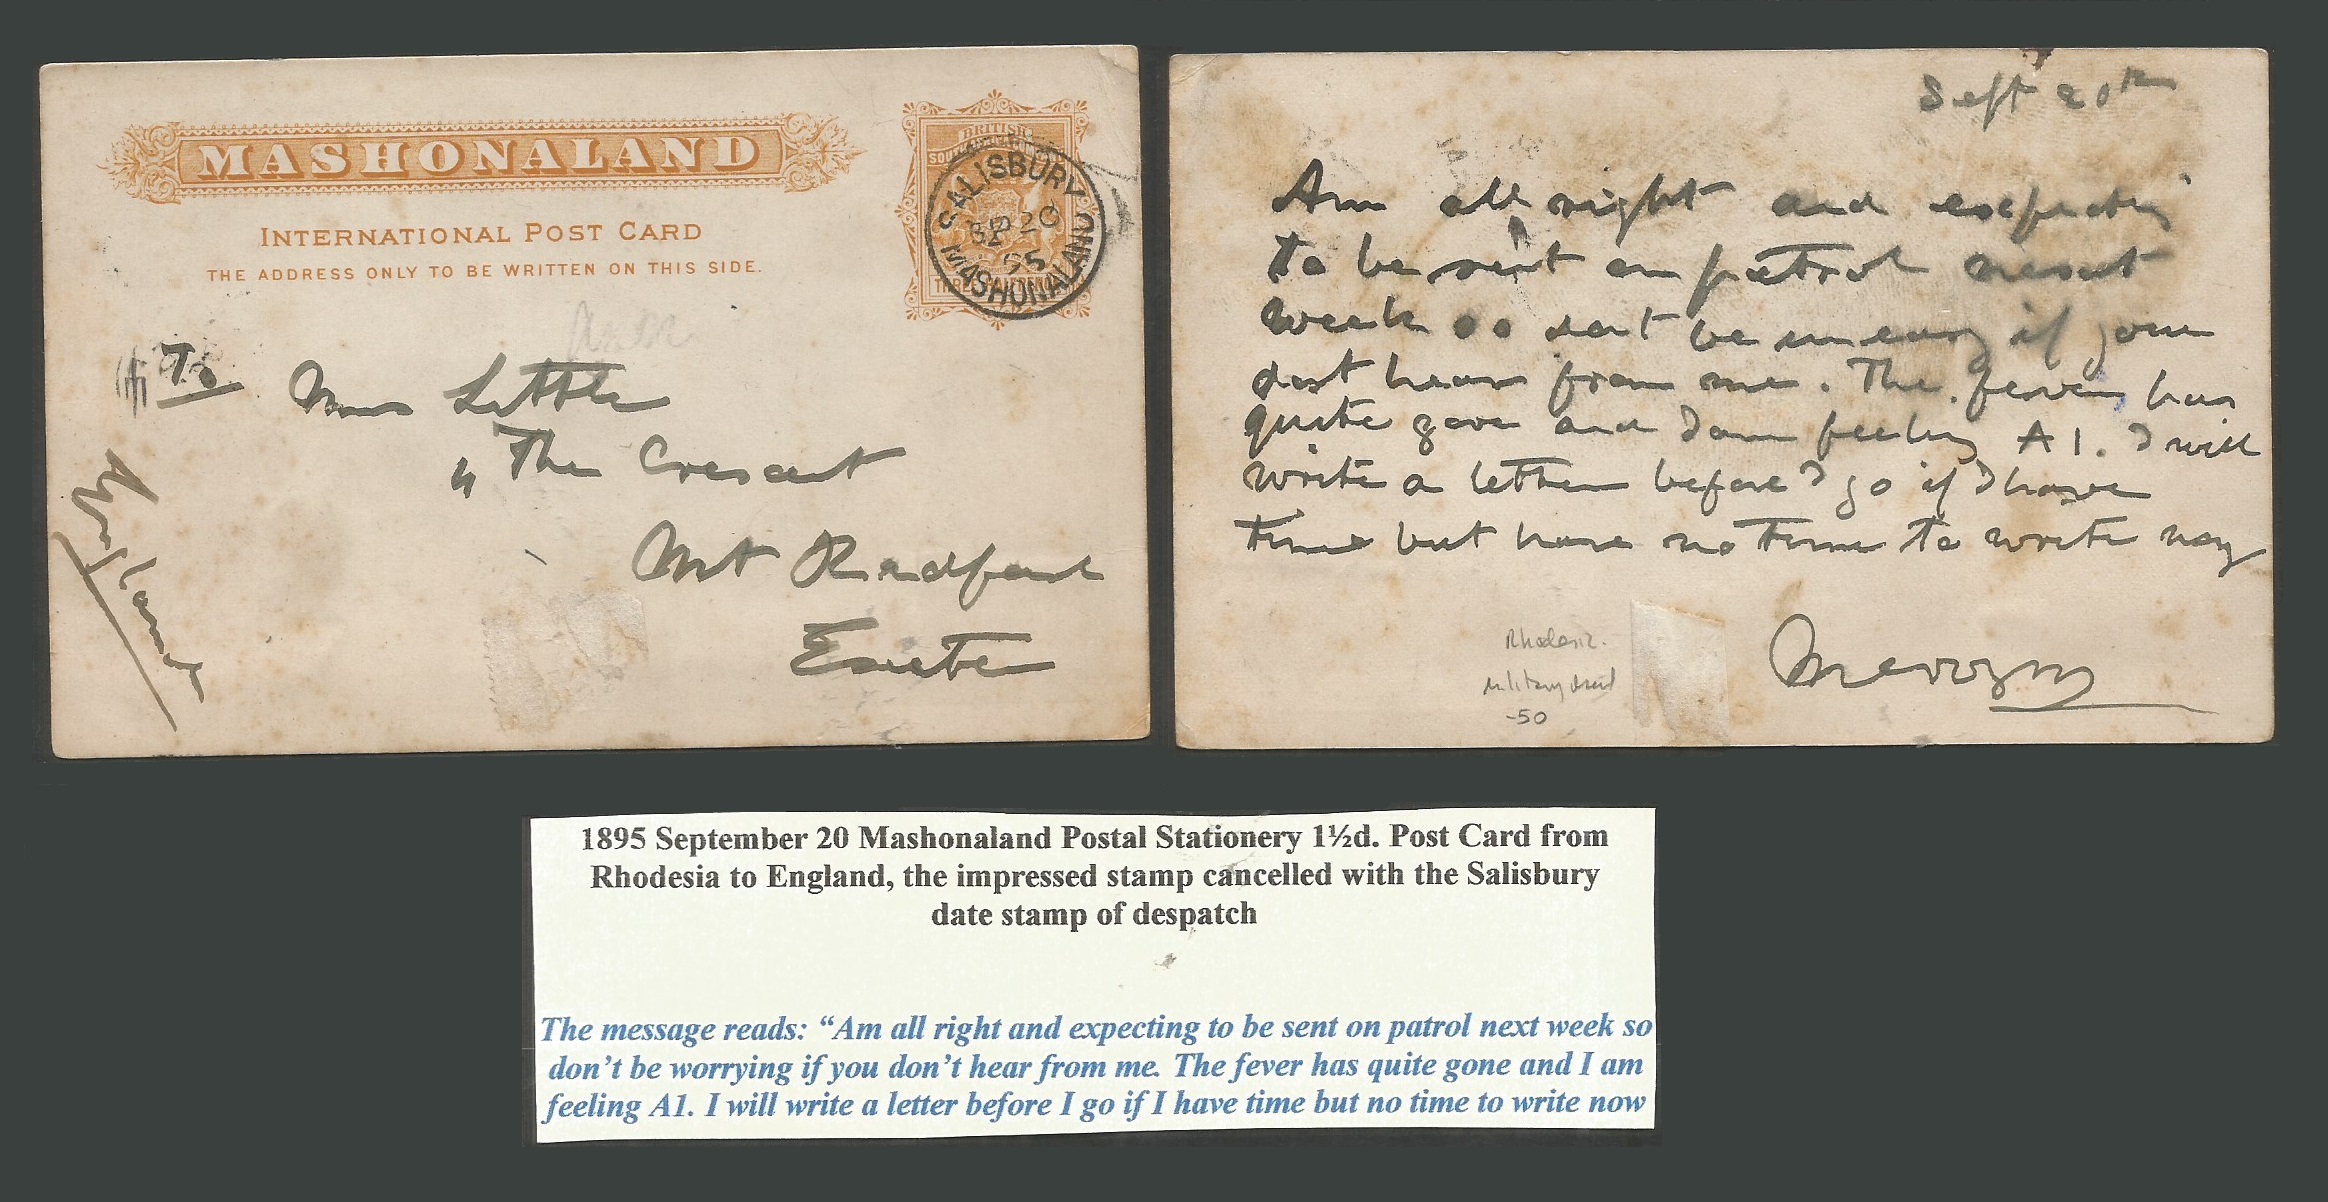 MASHONALAND
INTERNATIONAL POST CARD
THE ADDRESS ONLY TO BE WRITTEN ON THIS SIDE.
BRITISH
SOUTH
THREE
SALISBURY
SP 20
95
MASHONALAND
To
Mrs Little
4 The Crescent
Mt Radford
Exeter
England
Sept 20th
Am all right and expecting
to be sent on patrol next
week so dont be uneasy if you
dont hear from me. The fever has
quite gone and I am feeling A1. I will
write a letter before I go if I have
time but have no time to write now
Mervyn
Rhodesia.
military mail
-50
1895 September 20 Mashonaland Postal Stationery 1½d. Post Card from
Rhodesia to England, the impressed stamp cancelled with the Salisbury
date stamp of despatch
The message reads: “Am all right and expecting to be sent on patrol next week so
don’t be worrying if you don’t hear from me. The fever has quite gone and I am
feeling A1. I will write a letter before I go if I have time but no time to write now